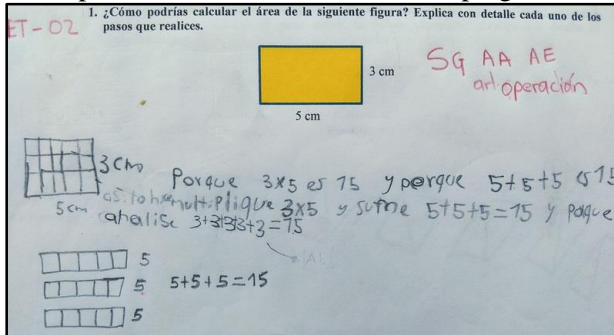 1. ¿Cómo podrías calcular el área de la siguiente figura? Explica con detalle cada uno de los
pasos que realices.
ET-02
3 cm
5 cm
SG AA AE
art. operación
3 cm
5 cm
Porque 3x5 es 15 y porque 5+5+5 es 15
multiplique 3x5 y sume 5+5+5=15 y porque
analise 3+3+3+3+3=15
5
5 5+5+5=15
5